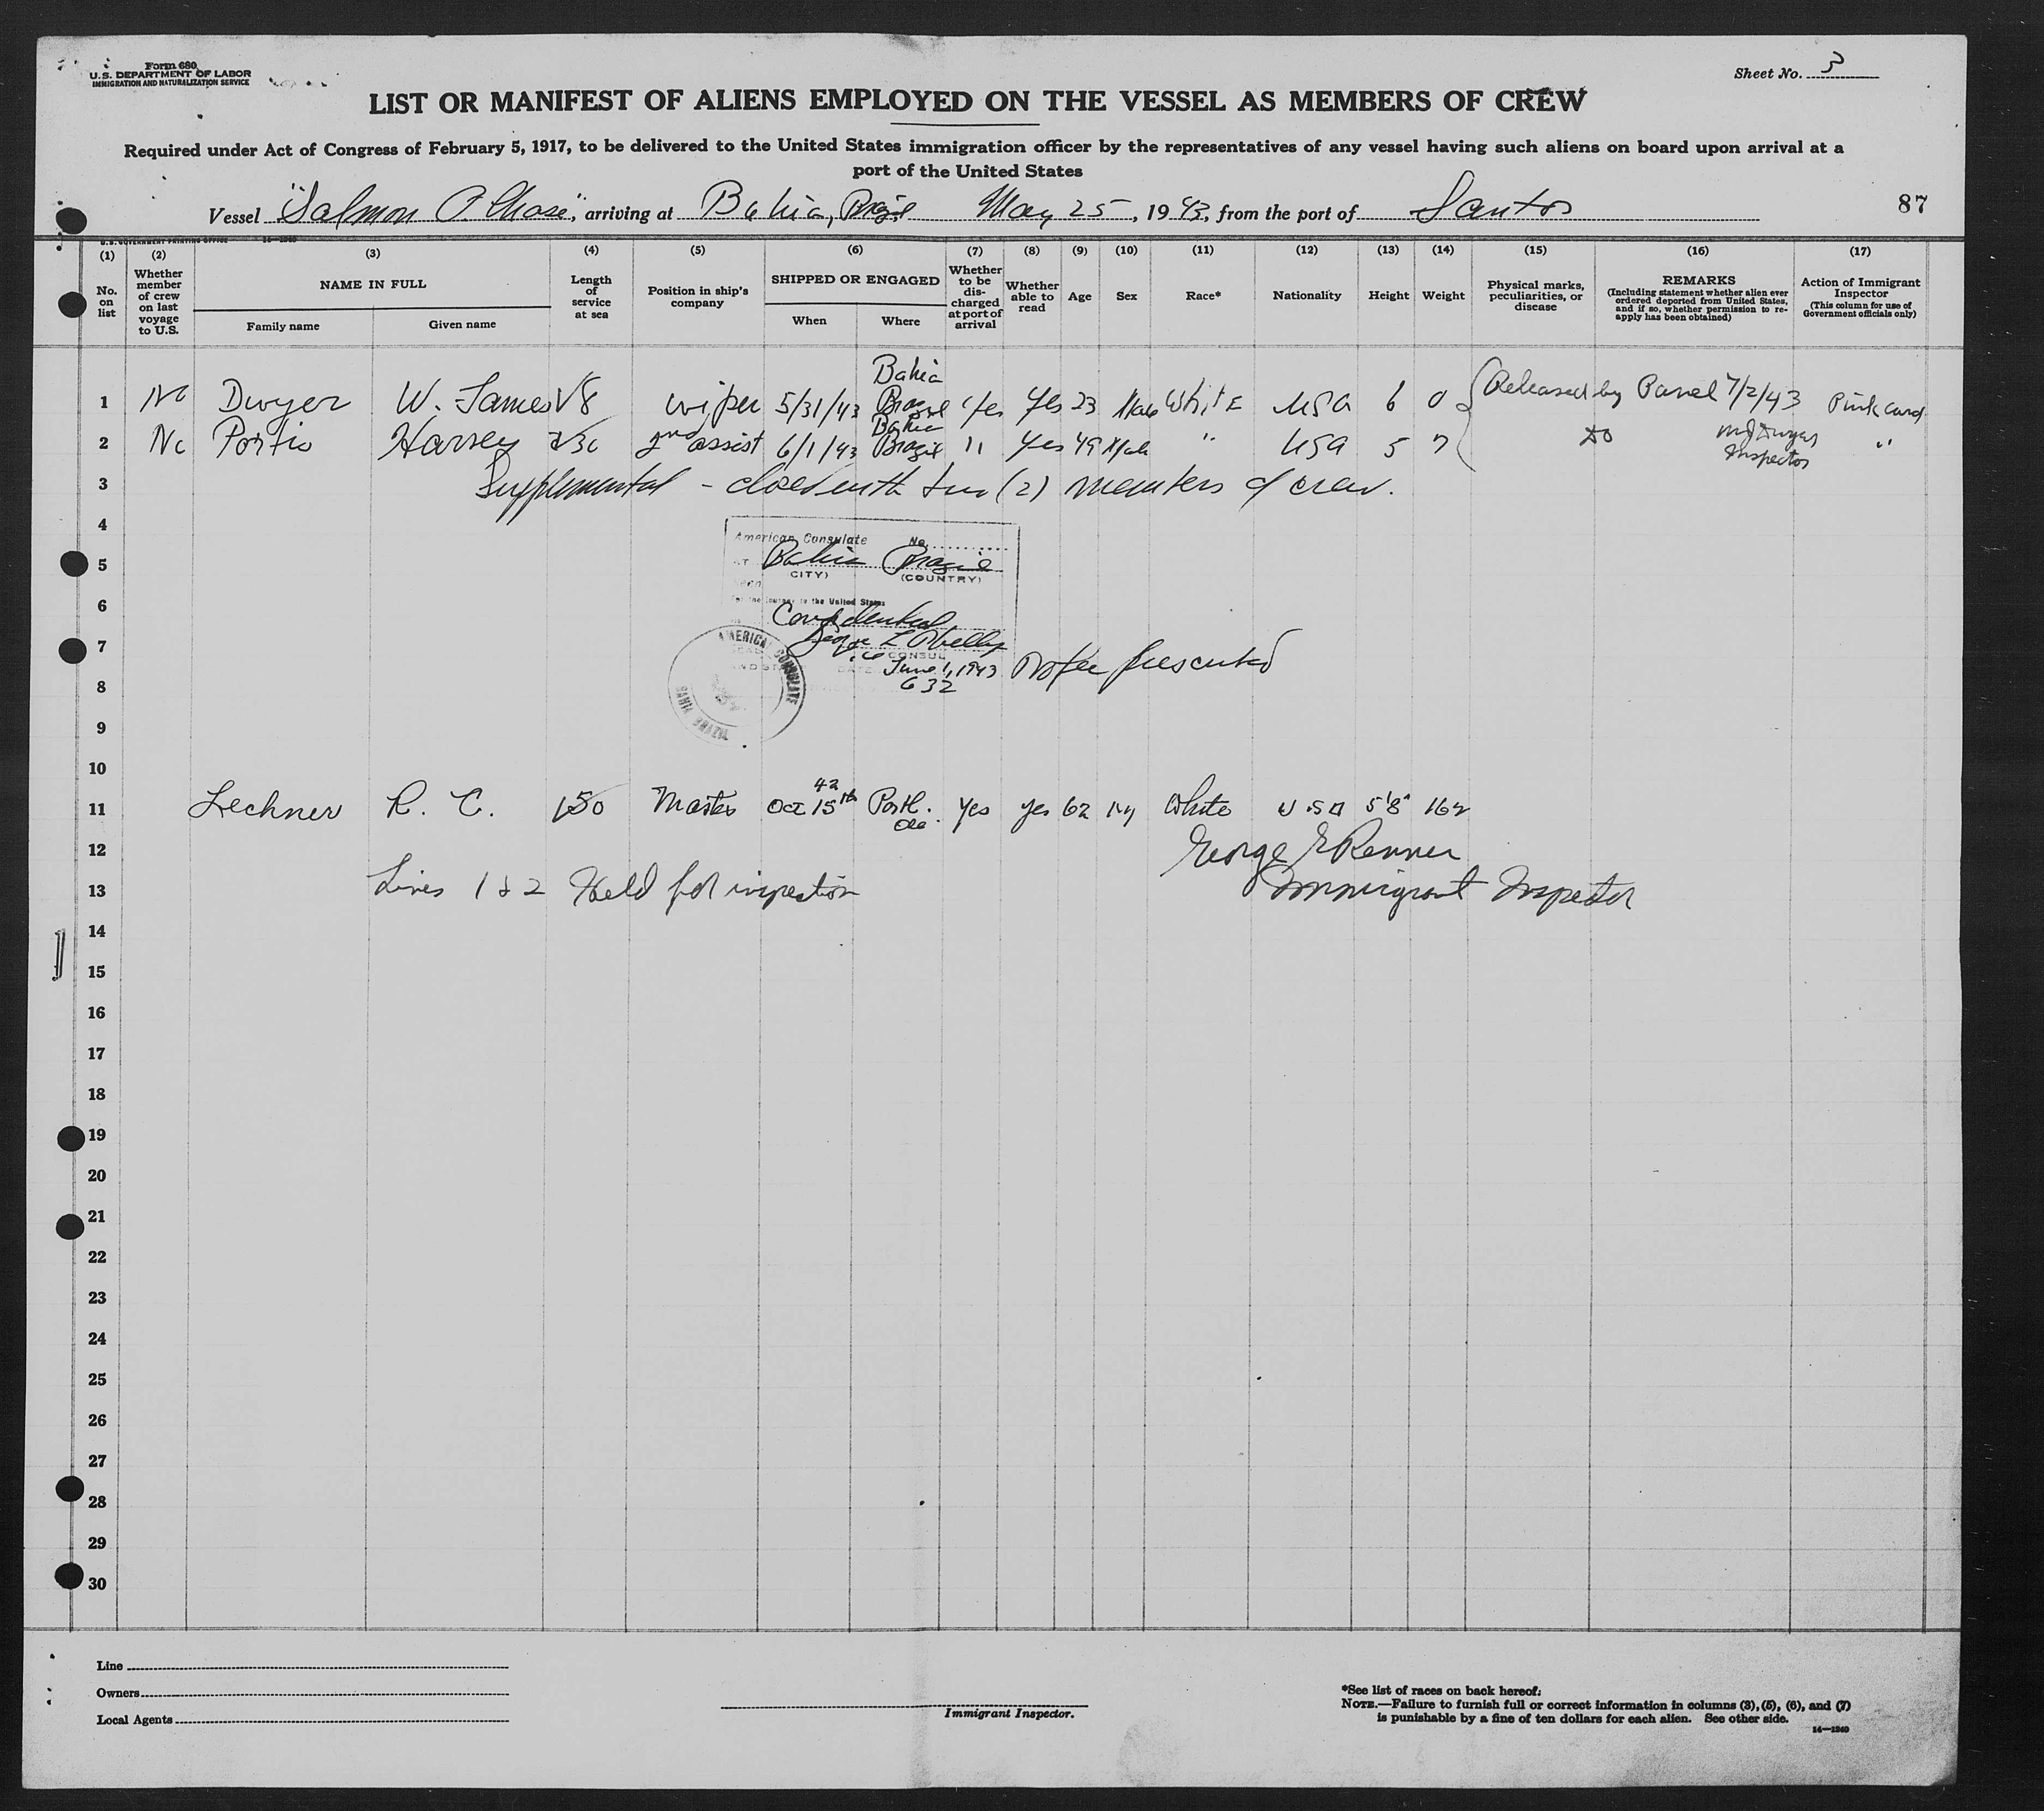 Form 680
U.S. DEPARTMENT OF LABOR
IMMIGRATION AND NATURALIZATION SERVICE
Sheet No. 3
LIST OR MANIFEST OF ALIENS EMPLOYED ON THE VESSEL AS MEMBERS OF CREW
Required under Act of Congress of February 5, 1917, to be delivered to the United States immigration officer by the representatives of any vessel having such aliens on board upon arrival at a
port of the United States
Vessel "Salmon P. Chase", arriving at Bahia, Brazil May 25, 1943, from the port of Santos
87
U.S. GOVERNMENT PRINTING OFFICE 16—1240
(1) (2) (3) (4) (5) (6) (7) (8) (9) (10) (11) (12) (13) (14) (15) (16) (17)
No. on list
Whether member of crew on last voyage to U.S.
NAME IN FULL
Family name Given name
Length of service at sea
Position in ship's company
SHIPPED OR ENGAGED
When Where
Whether to be discharged at port of arrival
Whether able to read
Age
Sex
Race*
Nationality
Height
Weight
Physical marks, peculiarities, or disease
REMARKS
(Including statement whether alien ever ordered deported from United States, and if so, whether permission to reapply has been obtained)
Action of Immigrant Inspector
(This column for use of Government officials only)
1 No Dwyer W. James 8 wiper 5/31/43 Bahia Brazil Yes Yes 23 Male White USA 6 0 Released by Panel 7/2/43 Pink card
2 No Portis Harvey 30 2nd assist 6/1/43 Bahia Brazil " Yes 49 Male " USA 5 7 do Inspector "
3 Supplemental - closed with two (2) members of crew.
4
American Consulate No.
5 Bahia Brazil
(CITY) (COUNTRY)
6
For the journey to the United States
Confidential
7
CONSUL
June 1, 1943
632
No fee prescribed
8
AMERICAN CONSULATE
BAHIA BRAZIL
9
10
11 Lechner R. C. 50 Master Oct 15th 42 Portl. Ore. Yes yes 62 M White USA 5'8" 162
12 George E Renner
13 Lines 1 & 2 Held for inspection Immigrant Inspector
14
15
16
17
18
19
20
21
22
23
24
25
26
27
28
29
30
Line
Owners
Local Agents
Immigrant Inspector.
*See list of races on back hereof:
NOTE.—Failure to furnish full or correct information in columns (3), (5), (6), and (7)
is punishable by a fine of ten dollars for each alien. See other side.
16—1240